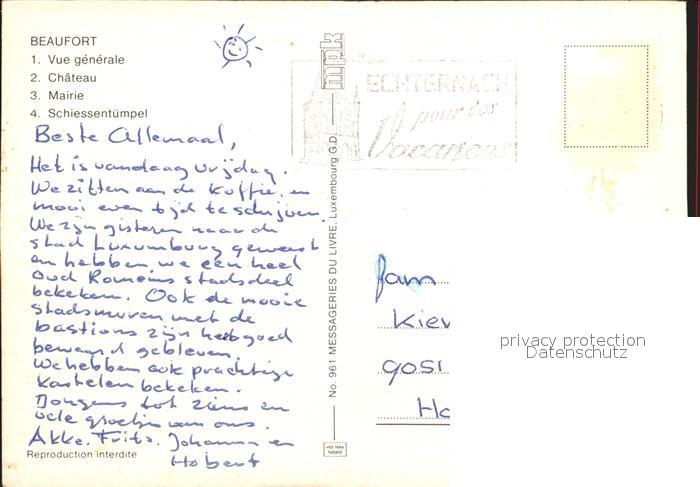 BEAUFORT
1. Vue générale
2. Château
3. Mairie
4. Schiessentümpel
Beste Allemaal,
Het is vandaag vrijdag.
We zitten aan de koffie en
mooi even tijd te schrijven.
We zijn gisteren naar de
stad Luxumburg geweest
en hebben we een heel
oud Romeins stadsdeel
bekeken. Ook de mooie
stadsmuren met de
bastions zijn heel goed
bewaard gebleven.
We hebben ook prachtige
kastelen bekeken.
Jongens tot ziens en
vele groetjes van ons.
Akke. Frits. Johanna en
Hobert
Reproduction interdite
mpk
No. 961 MESSAGERIES DU LIVRE, Luxembourg G.D.
ECHTERNACH
pour vos
Vacances
fam
Kiev
gosi
Ho
privacy protection
Datenschutz